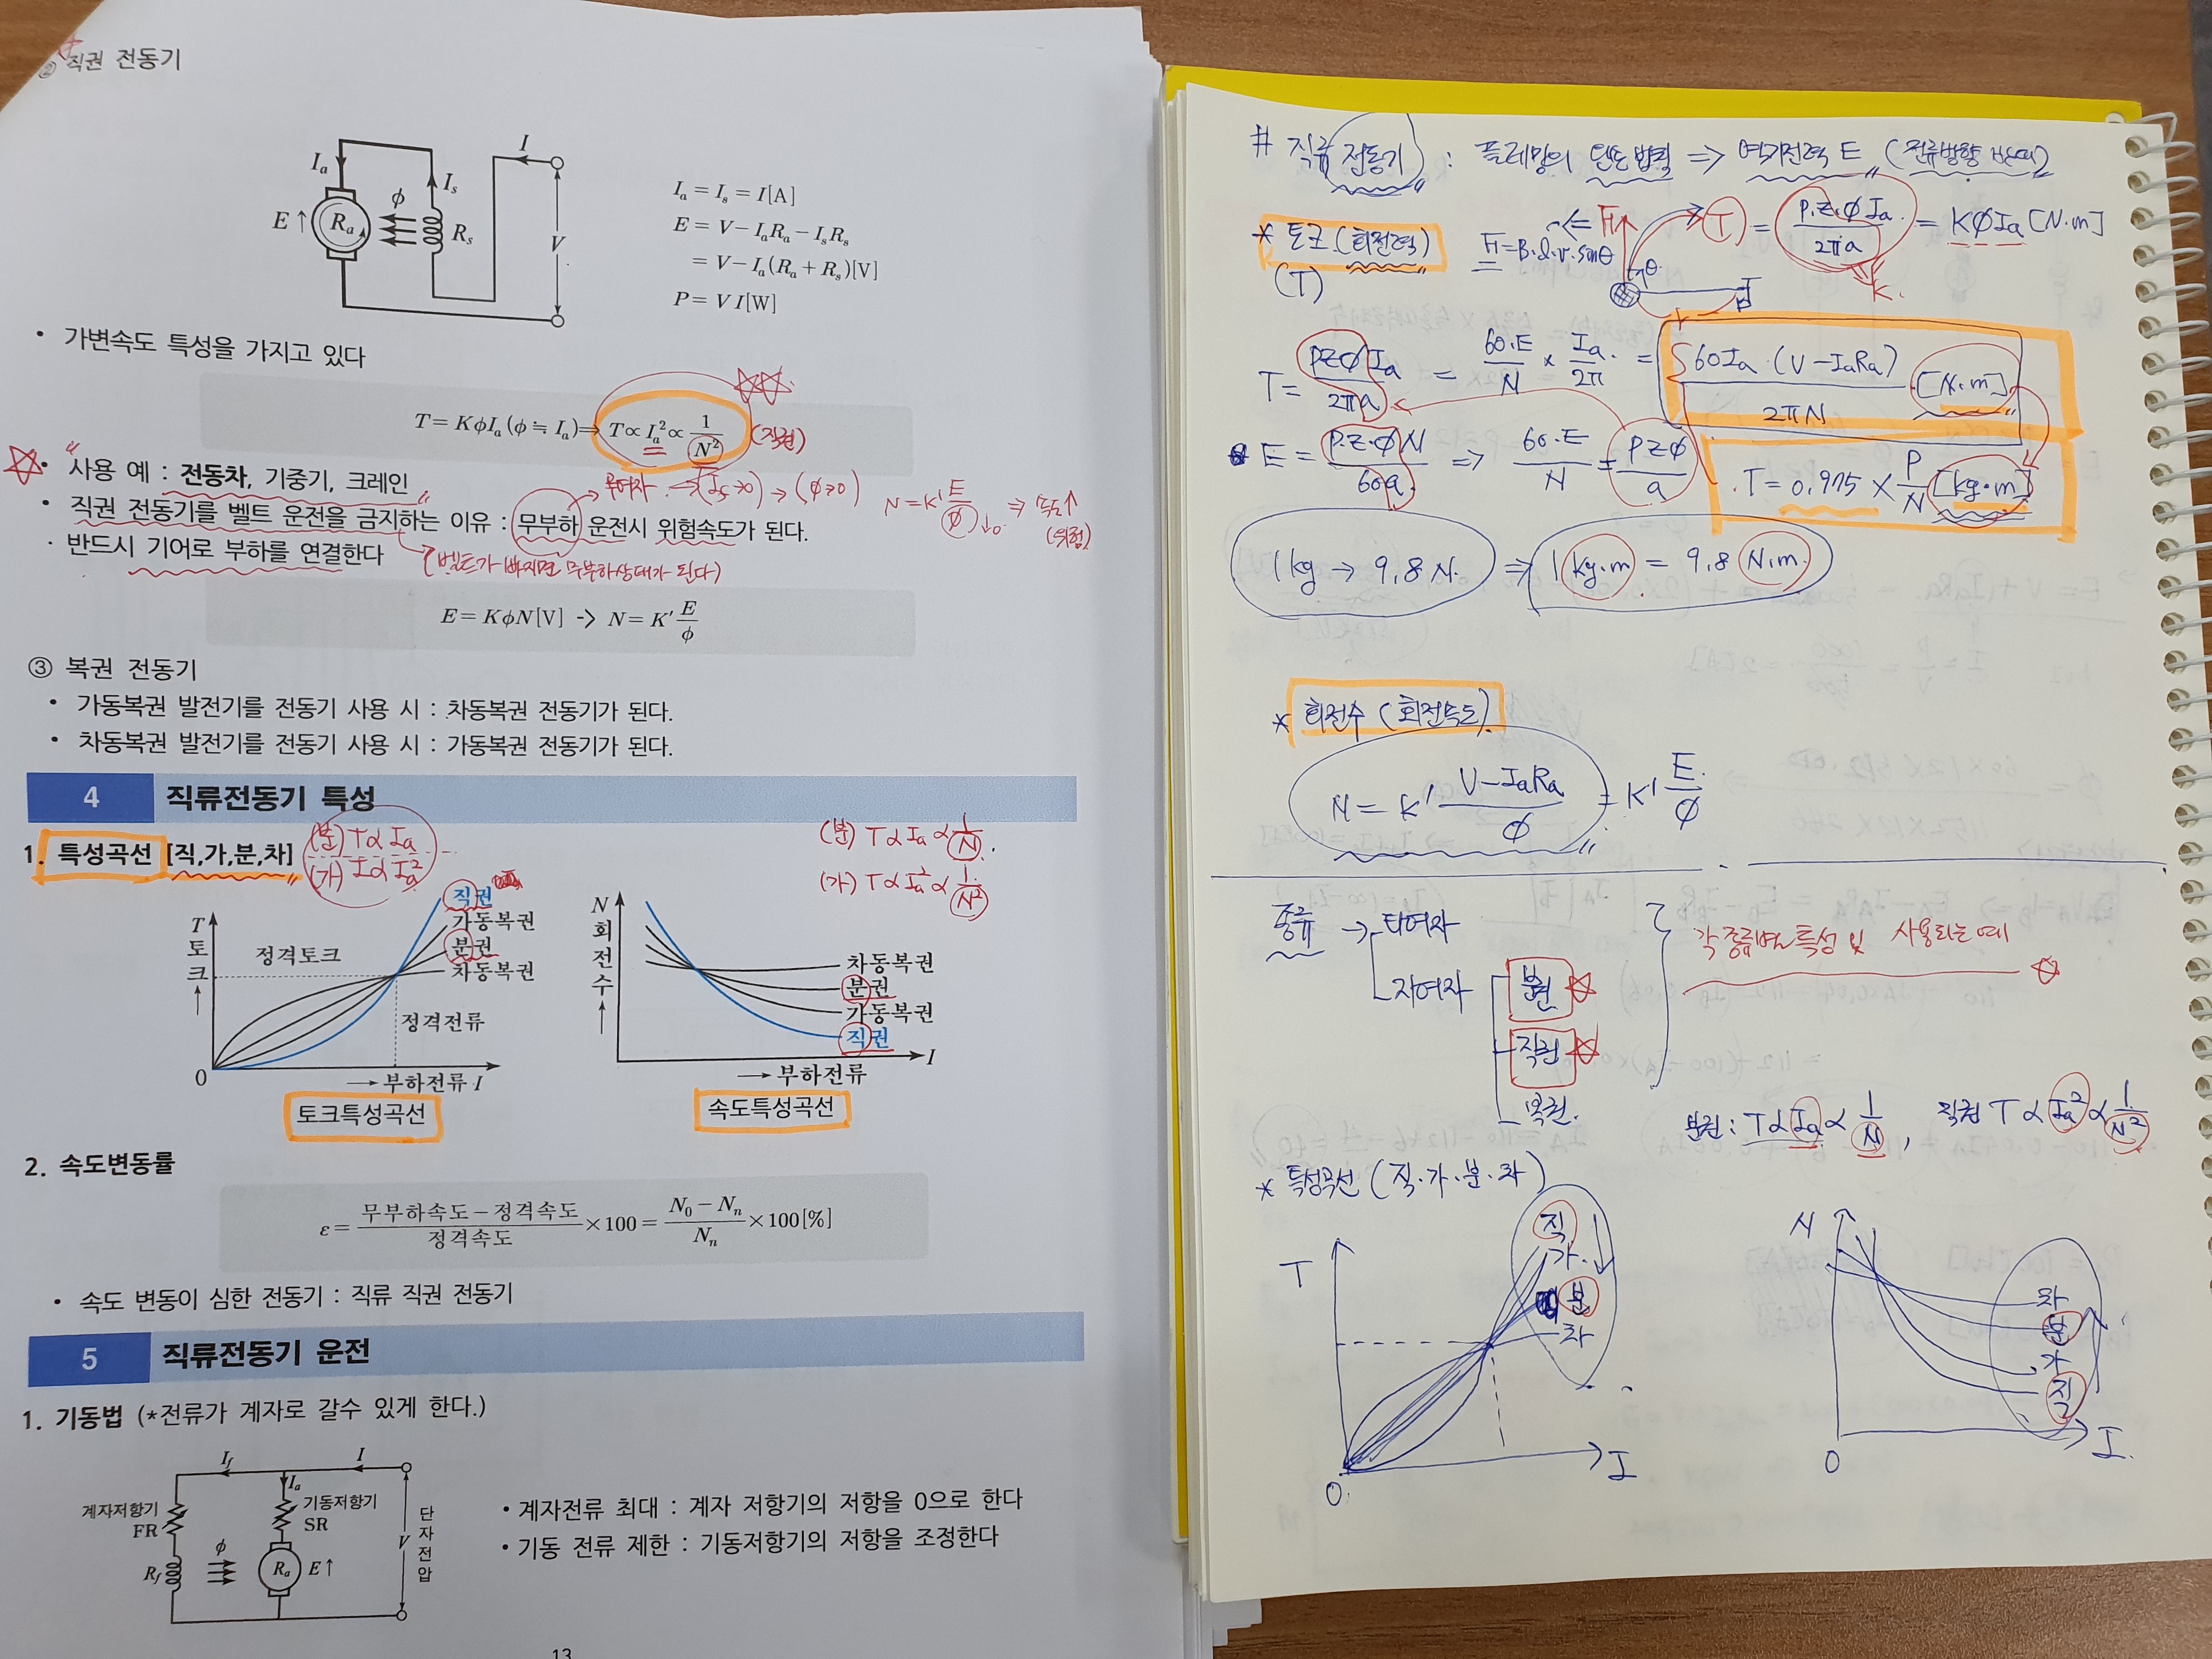 ② 직권 전동기
I_a
E ↑
R_a
ϕ
I_s
R_s
I
V
I_a = I_s = I[A]
E = V − I_aR_a − I_sR_s
= V − I_a(R_a + R_s)[V]
P = V I[W]
• 가변속도 특성을 가지고 있다
T = KϕI_a (ϕ ≒ I_a) ⇒ T ∝ I_a² ∝ 1/N² (직권)
• "사용 예 : 전동차, 기중기, 크레인"
무여자 → (I_s→0) → (ϕ→0)
N = K′ E/ϕ↓0 ⇒ 속도↑ (위험)
• 직권 전동기를 벨트 운전을 금지하는 이유 : 무부하 운전시 위험속도가 된다.
· 반드시 기어로 부하를 연결한다
(벨트가 빠지면 무부하상태가 된다)
E = KϕN[V] -> N = K′ E/ϕ
③ 복권 전동기
• 가동복권 발전기를 전동기 사용 시 : 차동복권 전동기가 된다.
• 차동복권 발전기를 전동기 사용 시 : 가동복권 전동기가 된다.
4 직류전동기 특성
1. 특성곡선 [직,가,분,차]
(분) T∝I_a
(가) T∝I_a²
(분) T∝I_a∝1/N.
(가) T∝I_a²∝1/N²
T 토크 →
정격토크
직권
가동복권
분권
차동복권
정격전류
0
→ 부하전류 I
토크특성곡선
N 회전수 →
차동복권
분권
가동복권
직권
I
→ 부하전류
속도특성곡선
2. 속도변동률
ε = (무부하속도−정격속도)/정격속도 ×100 = (N₀ − Nₙ)/Nₙ ×100[%]
• 속도 변동이 심한 전동기 : 직류 직권 전동기
5 직류전동기 운전
1. 기동법 (*전류가 계자로 갈수 있게 한다.)
I_f
I
I_a
계자저항기 FR
기동저항기 SR
R_f
ϕ
R_a
E↑
단자전압
V
• 계자전류 최대 : 계자 저항기의 저항을 0으로 한다
• 기동 전류 제한 : 기동저항기의 저항을 조정한다
13
# 직류 전동기 : 플레밍의 왼손법칙 ⇒ 역기전력 E (전류방향 반대)
* 토크 (회전력)
(T)
F = B·l·v·sinθ
F
θ
r
T = P·Z·ϕ·Ia/2πa = KϕIa [N·m]
K.
T = PZϕIa/2πa = 60·E/N × Ia/2π = 60Ia·(V−IaRa)/2πN [N·m]
E = P·Z·ϕN/60a ⇒ 60·E/N = PZϕ/a
T = 0.975 × P/N [kg·m]
1kg → 9.8N. ⇒ 1kg·m = 9.8 N·m
* 회전수 (회전속도)
N = K′ (V−IaRa)/ϕ = K′ E/ϕ
종류 → 타여자
자여자
분권
직권
복권.
각 종류별 특성 및 사용되는 예
분권 : T∝Ia∝1/N , 직권 T∝Ia²∝1/N²
* 특성곡선 (직·가·분·차)
T
직
가
분
차
0
I
N
차
분
가
직
0
I